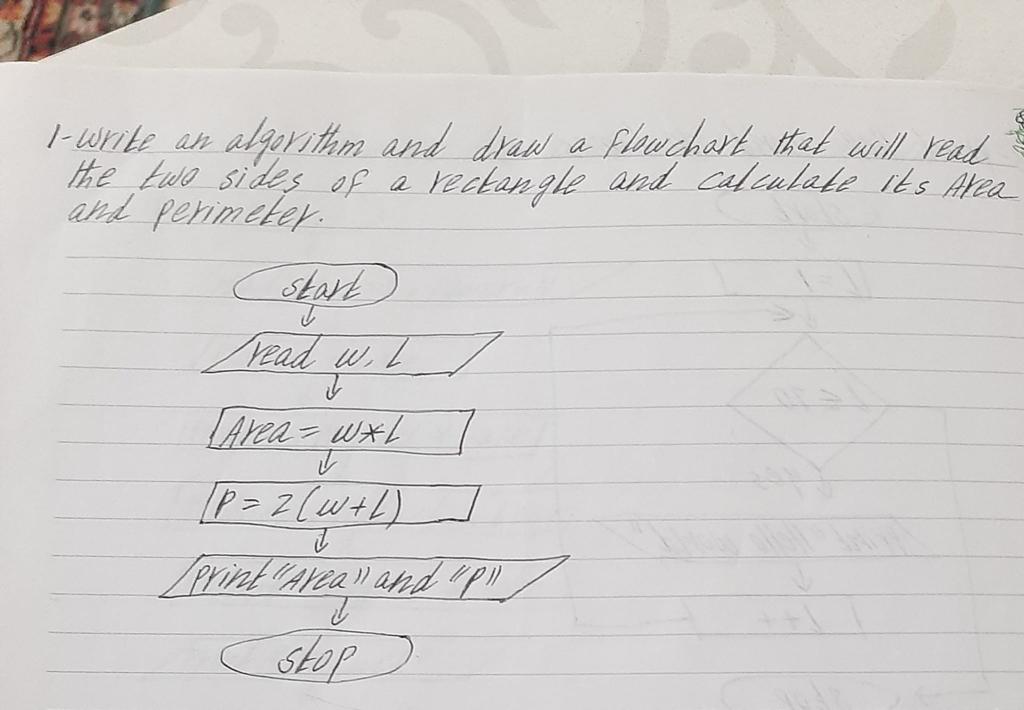 1-write an algorithm and draw a flowchart that will read
the two sides of a rectangle and calculate its Area
and perimeter.
start
read w, L
Area = w*L
P = 2(w+L)
print "Area" and "P"
stop